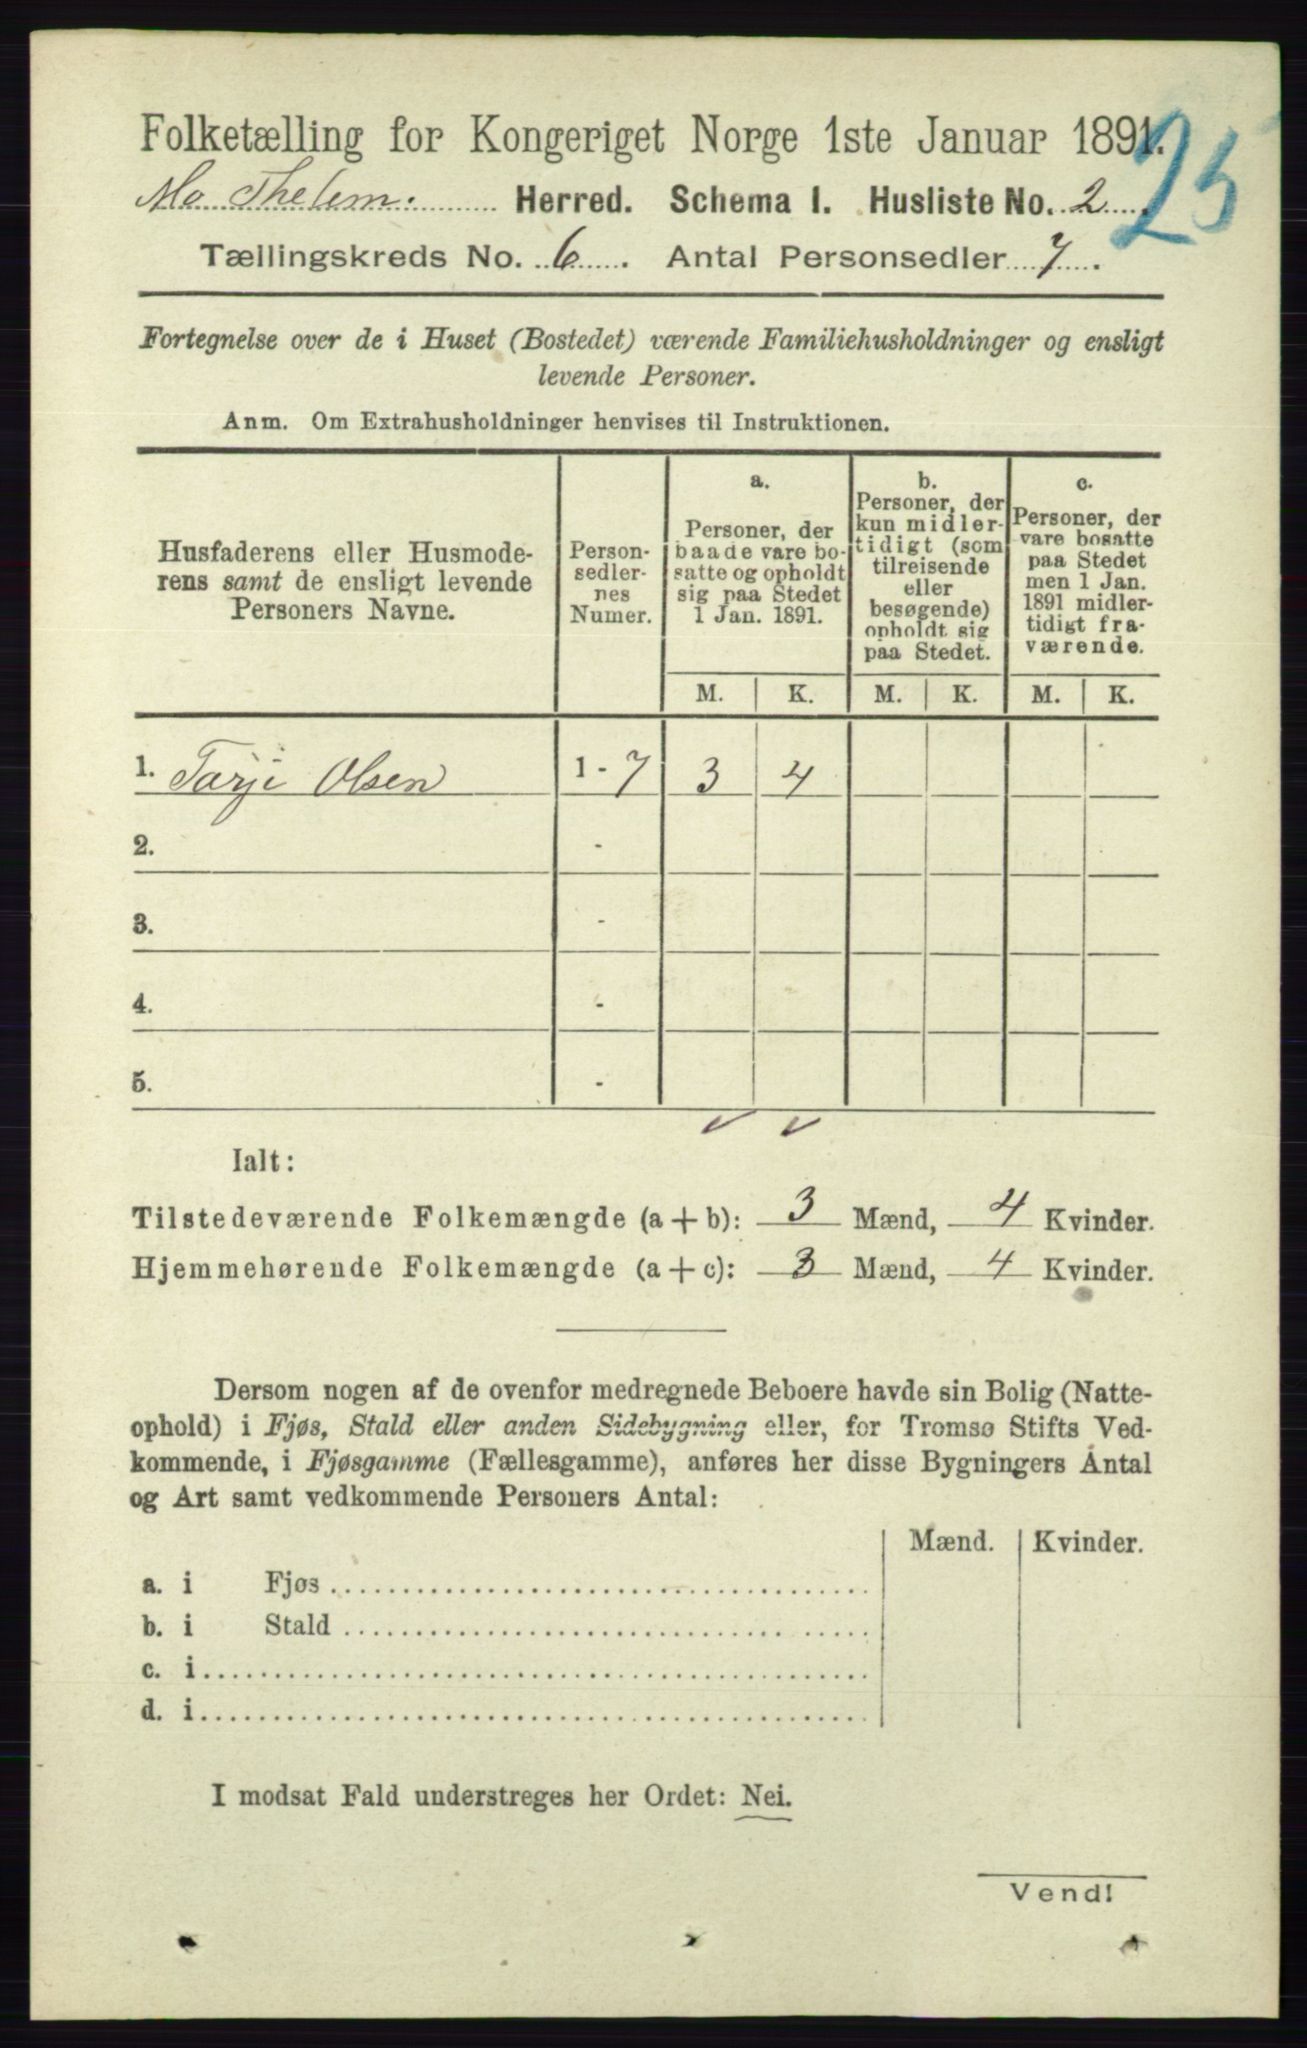 Folketælling for Kongeriget Norge 1ste Januar 1891.
25
Mo Thelem. Herred. Schema I. Husliste No. 2
Tællingskreds No. 6. Antal Personsedler 7.
Fortegnelse over de i Huset (Bostedet) værende Familiehusholdninger og ensligt
levende Personer.
Anm. Om Extrahusholdninger henvises til Instruktionen.
Husfaderens eller Husmode-
rens samt de ensligt levende
Personers Navne.
Person-
sedler-
nes
Numer.
a.
Personer, der
baade vare bo-
satte og opholdt
sig paa Stedet
1 Jan. 1891.
b.
Personer, der
kun midler-
tidigt (som
tilreisende
eller
besøgende)
opholdt sig
paa Stedet.
c.
Personer, der
vare bosatte
paa Stedet
men 1 Jan.
1891 midler-
tidigt fra-
værende.
M. K. M. K. M. K.
1. Tarje Olsen 1 - 7 3 4
2. -
3. -
4. -
5. -
Ialt:
Tilstedeværende Folkemængde (a + b): 3 Mænd, 4 Kvinder.
Hjemmehørende Folkemængde (a + c): 3 Mænd, 4 Kvinder.
Dersom nogen af de ovenfor medregnede Beboere havde sin Bolig (Natte-
ophold) i Fjøs, Stald eller anden Sidebygning eller, for Tromsø Stifts Ved-
kommende, i Fjøsgamme (Fællesgamme), anføres her disse Bygningers Antal
og Art samt vedkommende Personers Antal:
Mænd. Kvinder.
a. i Fjøs
b. i Stald
c. i
d. i
I modsat Fald understreges her Ordet: Nei.
Vend!